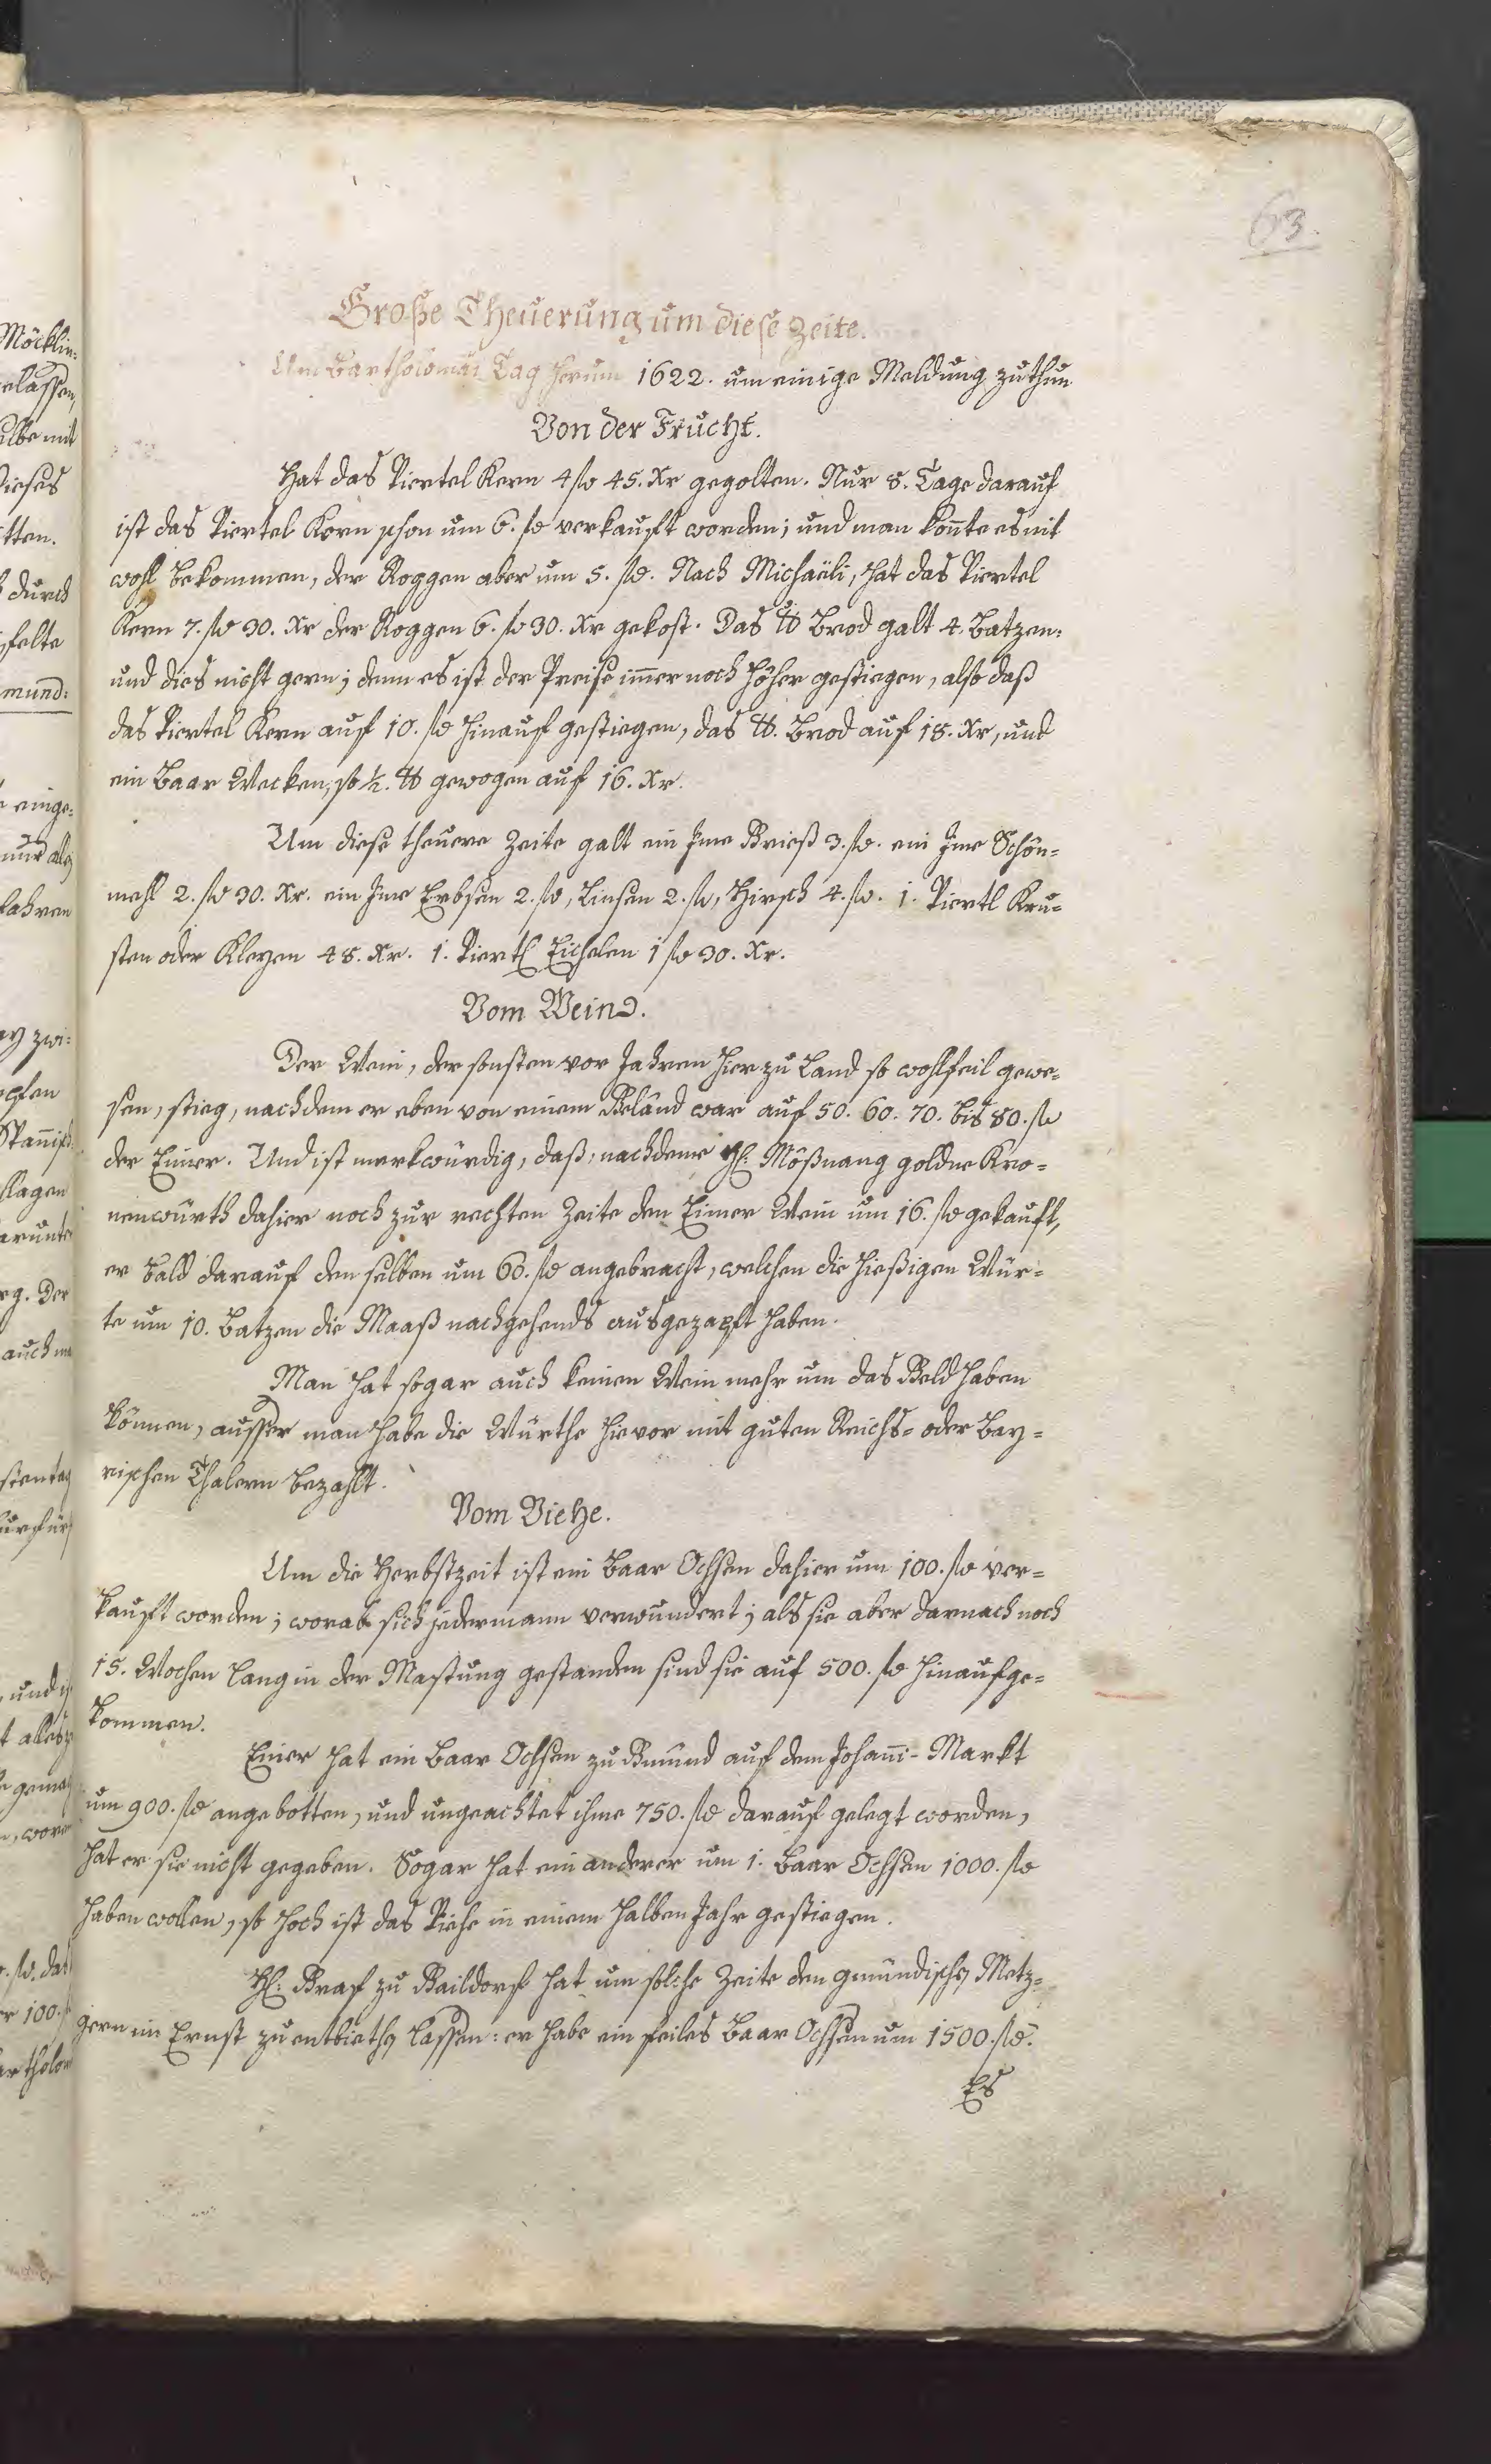 63.
Große Theuerung um diese Zeite.
Um Bartholomäi Tag herum 1622. um einige Meldung zuthun
Von der Frucht.
Hat das Viertel Kern 4 fl 45. Xr gegolten. Nur 8. Tage darauf
ist das Viertel Kern schon um 6. fl verkauft worden; und man konnte es nit
wohl bekommen, der Roggen aber um 5. fl. Nach Michaëli, hat das Viertel
Kern 7. fl 30. Xr der Roggen 6. fl 30. Xr gekost. Das ℔ Brod galt 4. Batzen:
und dies nicht gern; denn es ist der Preise im̅er noch höher gestiegen, also daß
das Viertel Kern auf 10. fl hinauf gestiegen, das ℔. Brod auf 18. Xr, und
ein Baar Wecken, so ½. ℔ gewogen auf 16. Xr.
Um diese theuere Zeite galt ein Jme Grieß 3. fl. ein Jme Schön-
mehl 2. fl 30. Xr. ein Jme Erbsen 2. fl, Linsen 2. fl, Hirsch 4. fl. 1. Viertl Kru-
sten oder Kleyen 48. Xr. 1. Viertl Eichelen 1 fl 30. Xr.
Vom Wein.
Der Wein, der sonsten vor Jahren hier zu Land so wohlfeil gewe-
sen, stieg, nachdem er eben von einem Geländ war auf 50. 60. 70. bis 80. fl
der Eimer. Und ist merkwürdig, daß, nachdeme H: Mößnang goldne Kro-
nenwürth dahier noch zur rechten Zeite den Eimer Wein um 16. fl gekauft,
er bald darauf den selben um 60. fl angebracht, welchen die hießigen Wür-
te um 10. Batzen die Maaß nachgehends ausgezapft haben.
Man hat sogar auch keinen Wein mehr um das Geld haben
können, ausser man habe die Würthe hievor mit guten Reichs- oder Bay-
rischen Thalern bezahlt.
Vom Viehe.
Um die Herbstzeit ist ein Baar Ochsen dahier um 100. fl ver-
kauft worden; worab sich jedermann verwundert; als sie aber darnach noch
15. Wochen lang in der Mastung gestanden sind sie auf 500. fl hinaufge-
kommen.
Einer hat ein Baar Ochsen zu Gmünd auf dem Johan̅i-Markt
um 900. fl angebotten, und ungeachtet ihme 750. fl darauf gelegt worden,
hat er sie nicht gegeben. Sogar hat ein anderer um 1. Baar Ochsen 1000. fl
haben wollen, so hoch ist das Viehe in einem halben Jahr gestiegen.
H: Graf zu Gaildorf hat um solche Zeite den gmündischen Metz-
gern im Ernst zu entbiethen lassen: er habe ein feiles Baar Ochsen um 1500. fl.
Es